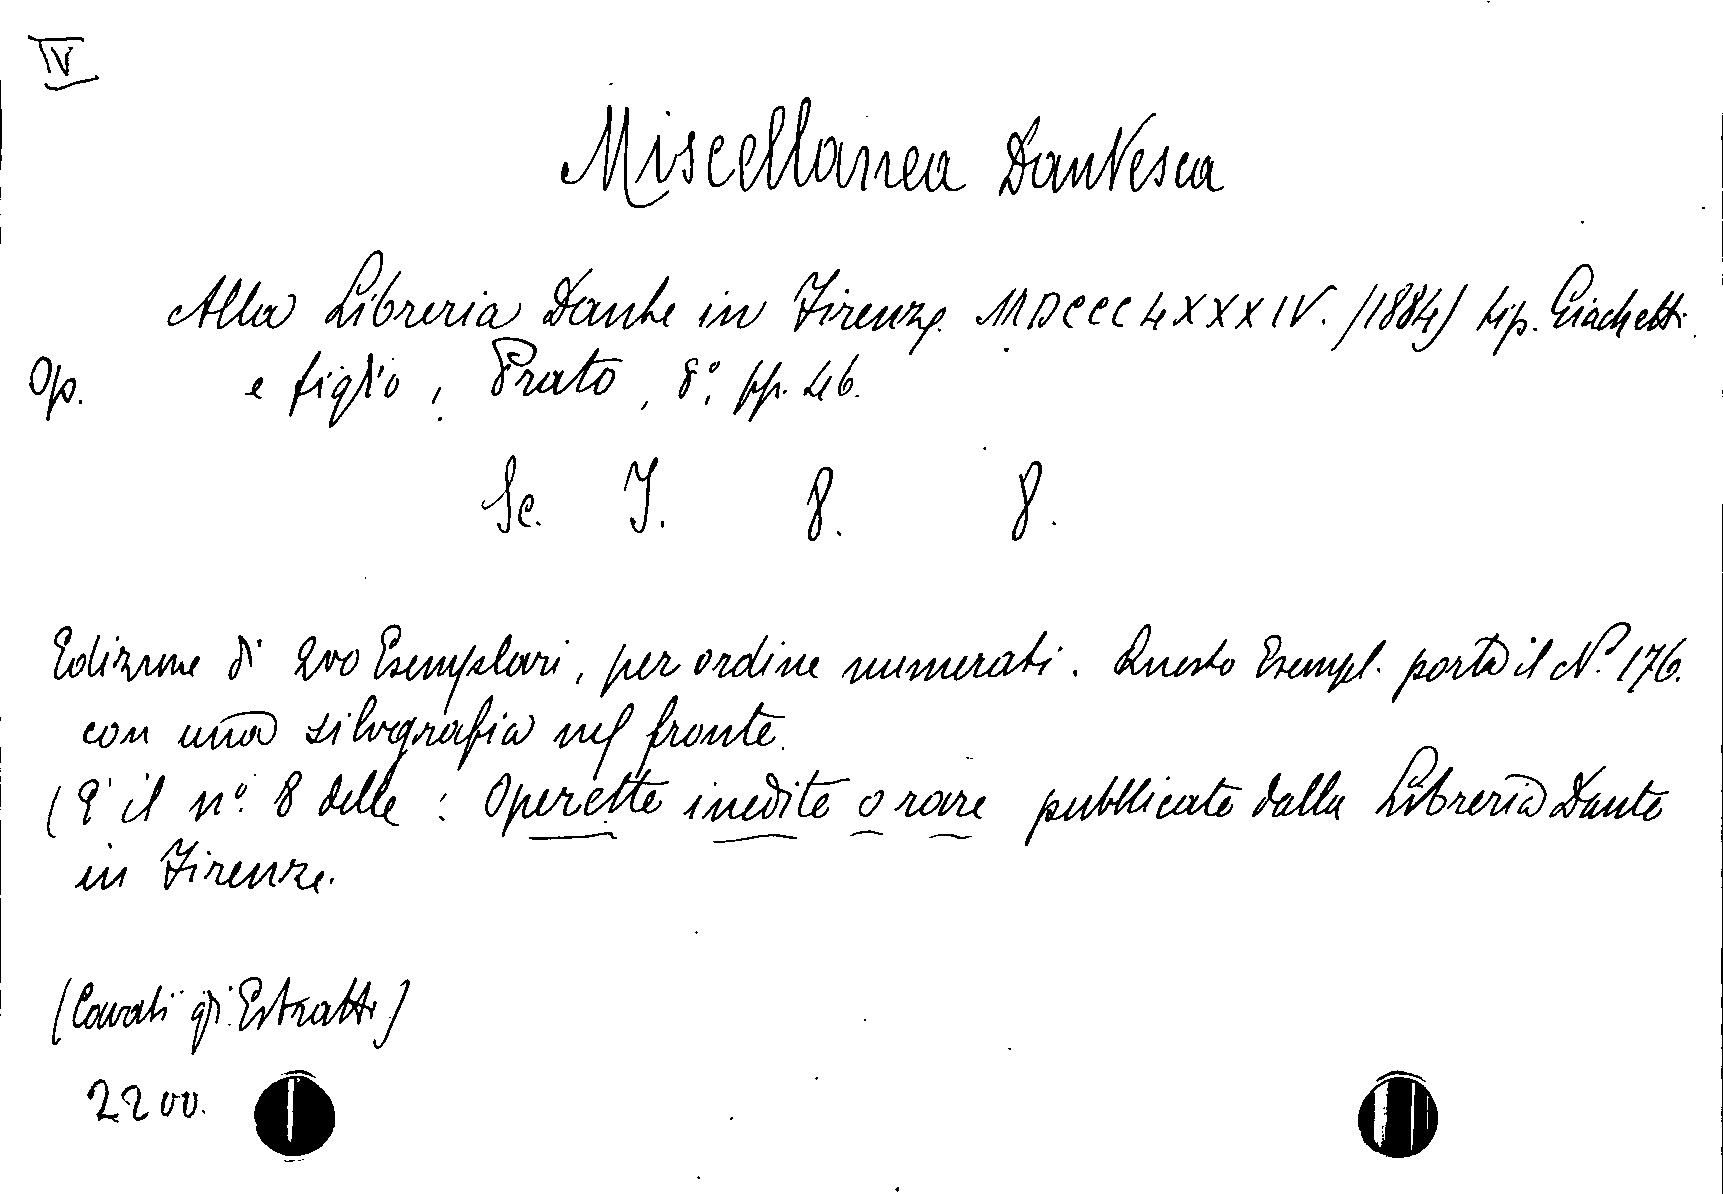 IV
Miscellanea Dantesca
Alla Libreria Dante in Firenze. MDCCCLXXXIV. (1884) tip. Giachetti
Op. e figlio, Prato, 8°, pp. 46.
Sc. I. 8. 8.
Edizione di 200 Esemplari, per ordine numerati. Questo Esempl. porta il N.° 176.
con una silografia nel fronte.
(È il n.° 8 delle: Operette inedite o rare pubblicate dalla Libreria Dante
in Firenze.
(Cavati gli Estratti)
2200.